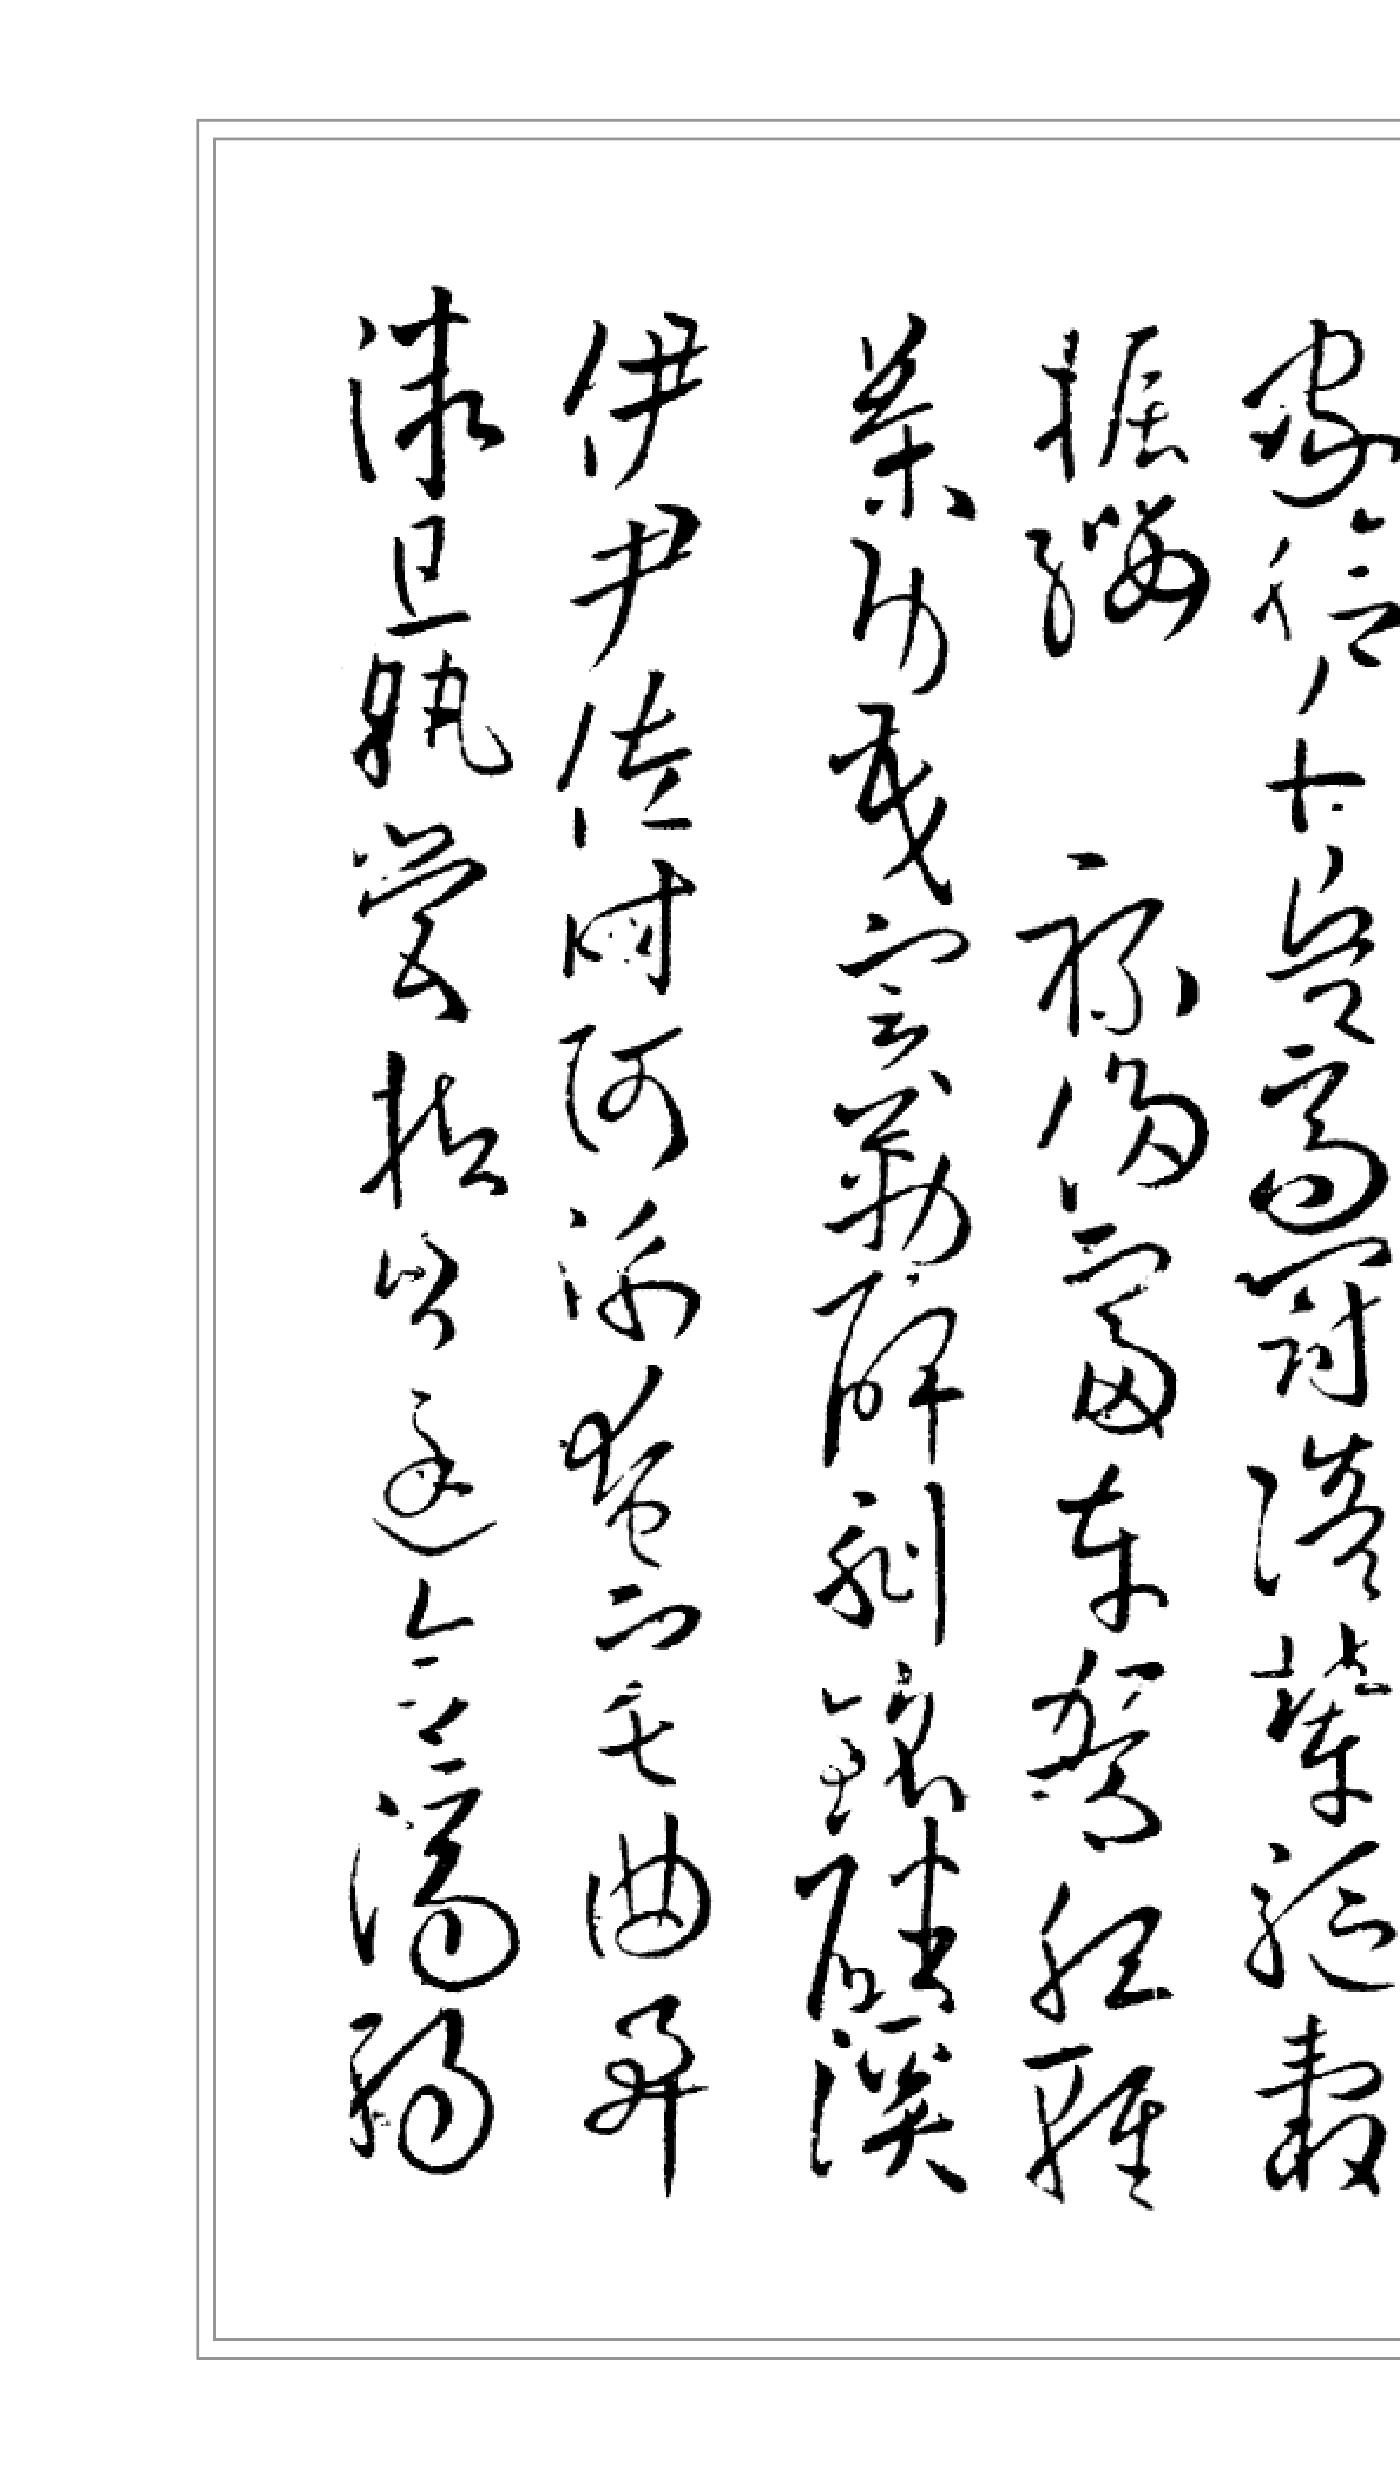 家給千兵高冠陪輦驅轂
振纓世祿侈富車駕肥輕
策功茂實勒碑刻銘磻溪
伊尹佐時阿衡奄宅曲阜
微旦孰營桓公匡合濟弱